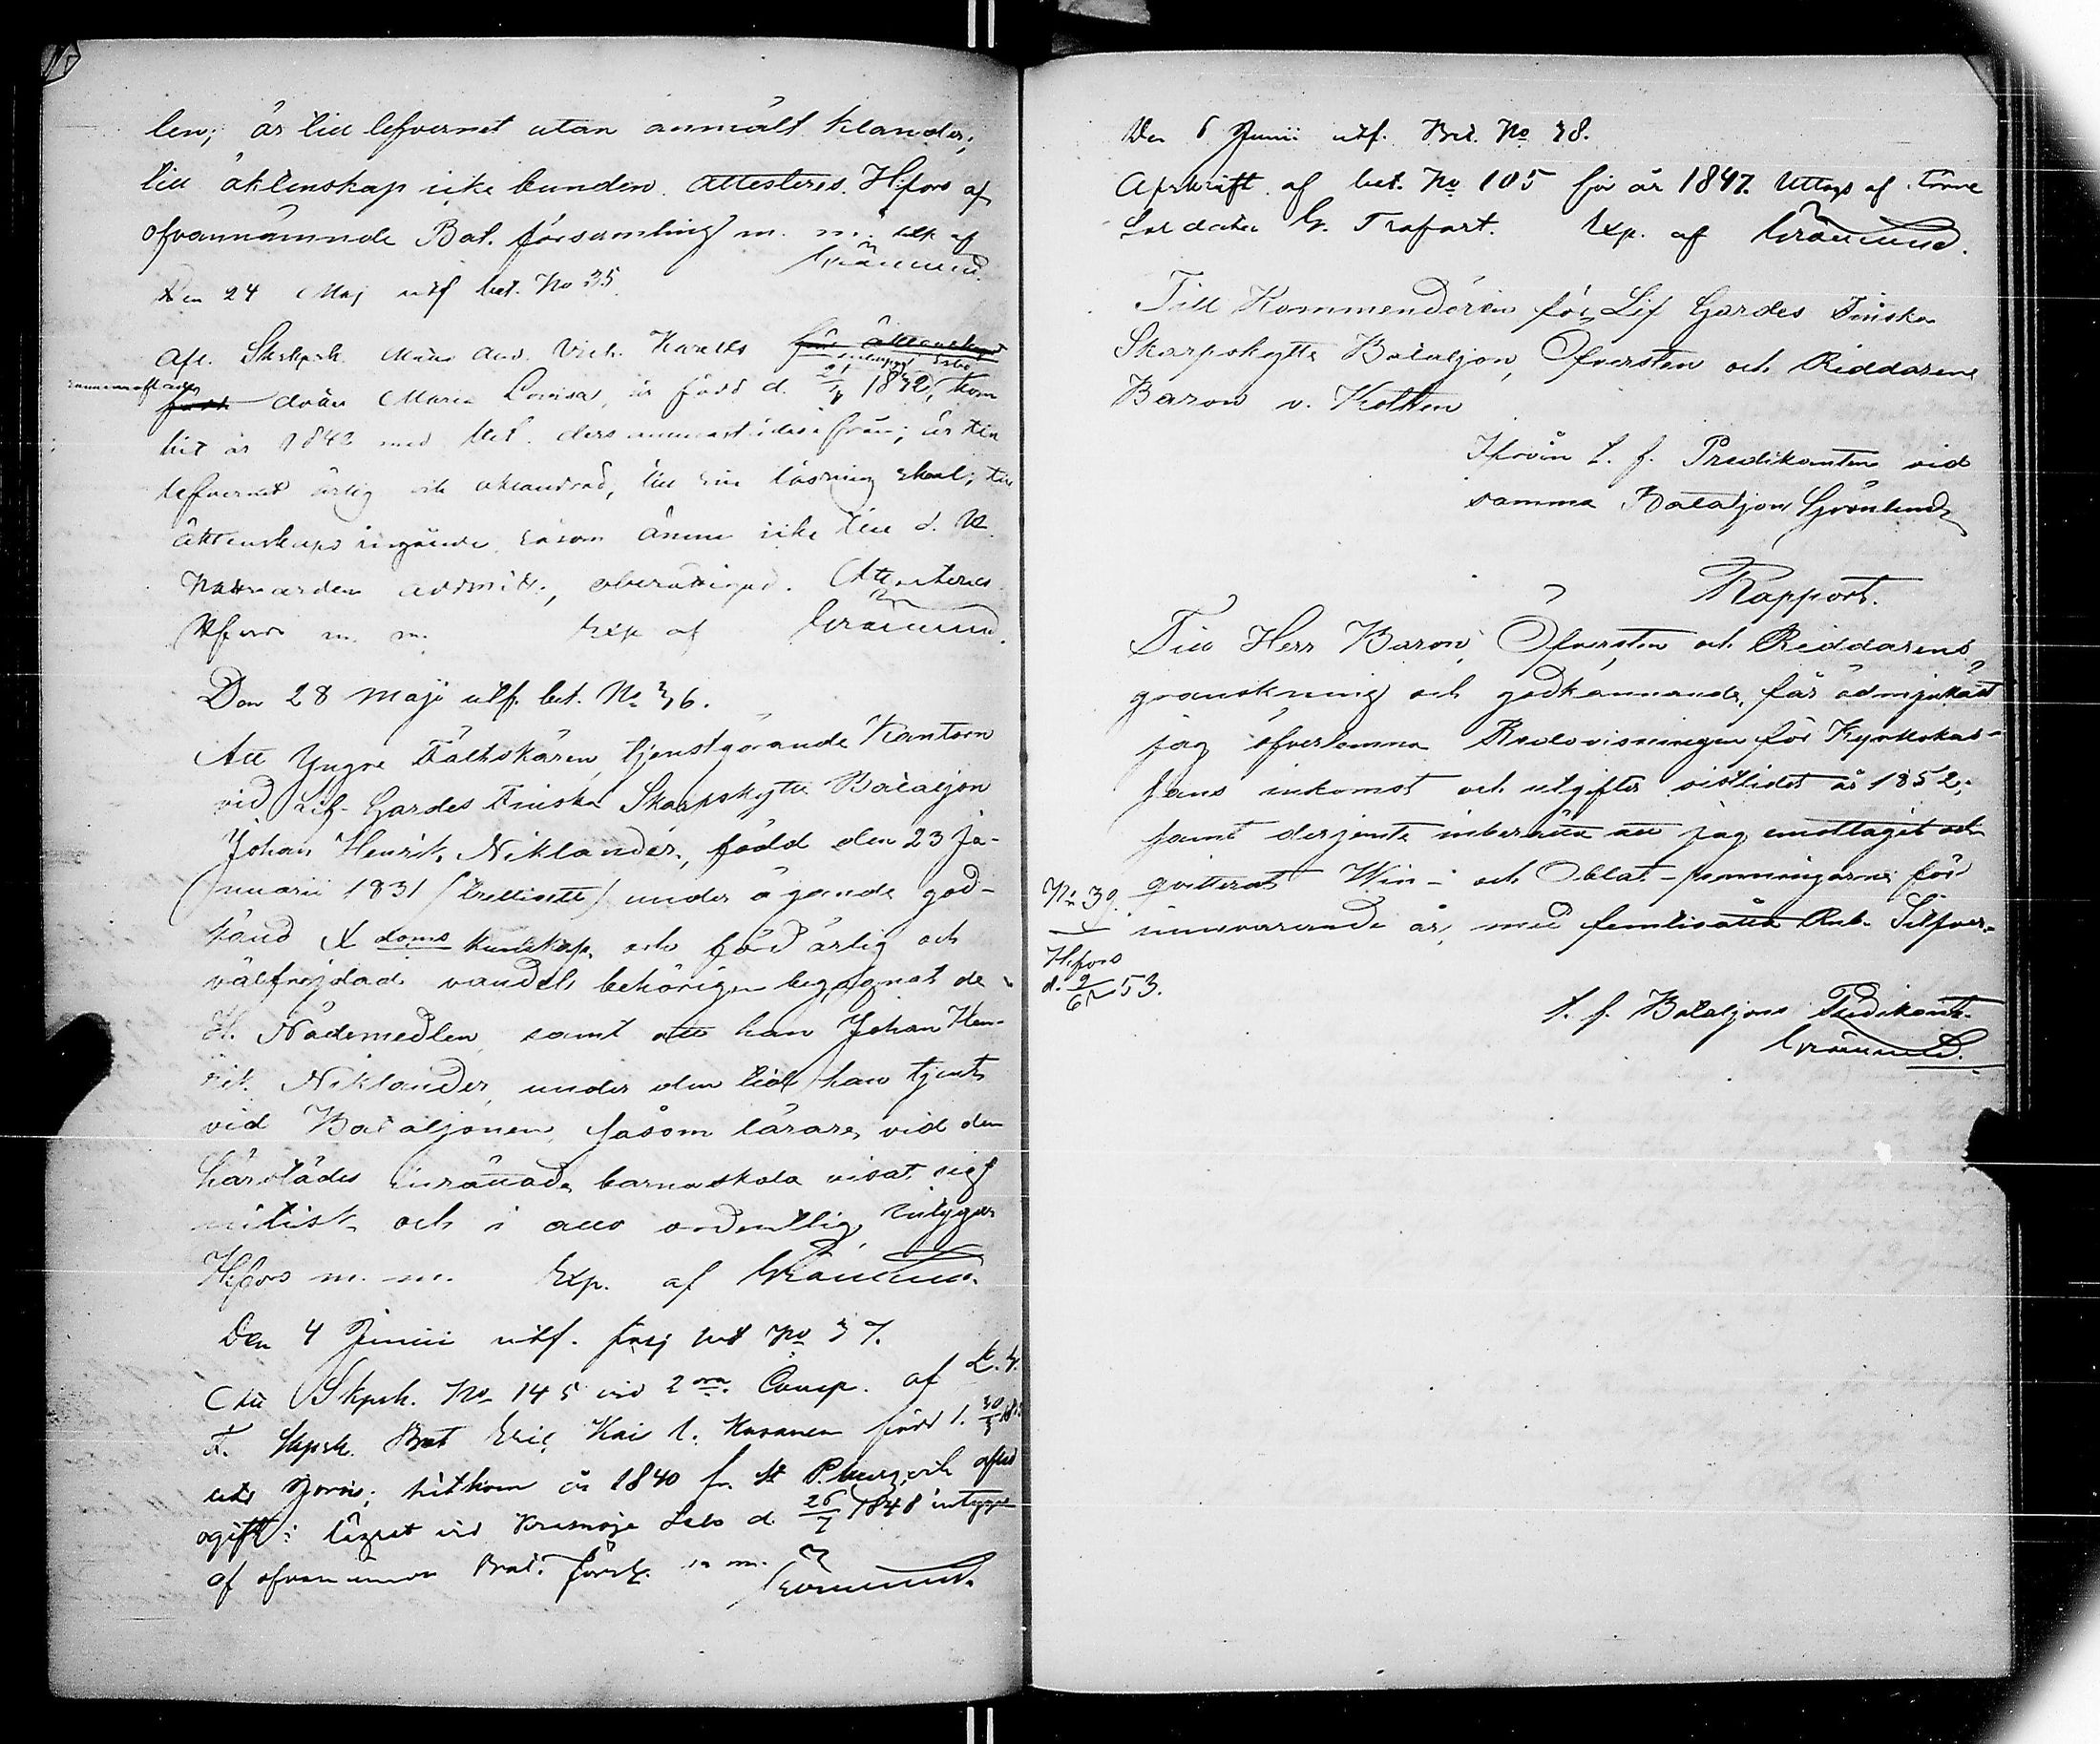 len; är till lefvernet utan anmält klander;
till äktenskap icke bunden. Attesteras. H:fors af
ofvannämnde Bat. församling m. m. exp. af
Grönlund.
Den 24 Maj utf bet. No 35.
Afl. Skrpsk. Mårs And. Vict. för äktenskap
född dräu Maria Lovisa, är född d. 21/4 1832, kom
hit år 1842 med bet. ; är till
lefvernet ärlig och oklandrad, till Sin läsning ; till
äktenskaps ingående, såsom ännu icke till d. H.
Nattvarden admitt., oberättigad. Attesteras
Hfors m. m. Exp af Grönlund.
Den 28 Maji utf. bet. No 36.
Att Yngre Fältskären, tjenstgörande Kantorn
vid Lif-Gardes Finska Skarpskytte Bataljon
Johan Henrik Niklander, född den 23 Ja-
nuarii 1831 (trettiett) under ägande god-
känd X doms kunskap, och förd ärlig och
välfrejdad vandel, behörigen begagnat de
H. Nådemedlen, samt att han Johan Hen-
rik Niklander, under den tid han tjent
vid Bataljonen, såsom lärare vid den
härstädes inrättade barnaskola visat sig
nitisk och i allo ordentlig, intygar
H:fors m. m. Exp. af Grönlund.
Den 4 Junii utf. frej bet No 37.
Att Skpsk. No 145 vid 2dra Comp. af L. G.
F. Skpsk. Bat Eric Kai född d. 30/3
; hitkom år 1840 fr. St P.burg, och
ogift: läget vid Krasnoje Selo d 26/7 1848 intygar
af ofvannämnda Bat. förs. m m. Grönlund.
Den 6 Junii utf. Bet. No 38.
Afskrift af bet. No 105 för år 1847. Uttags af förre
Soldaten G. Trafart. Exp. af Grönlund.
Till Kommendören för Lif Gardes Finska
Skarpskytte Bataljon, Öfversten och Riddarene
Baron v. Kothen
Ifrån t. f. Predikanten vid
samma Bataljon Grönlund
Rapport.
Till Herr Baron, Öfversten och Riddarens
granskning och godkännande, får ödmjukast
jag öfverlemna Redovisningen för Kyrkokas-
sans inkomst och utgifter sistlidet år 1852;
samt derjemte inberätta att jag emottagit och
qvitterat Win- och Oblat-penningarne för
innevarande år, med femtioåtta Rub. Silfver.
No 39.
H:fors
d. 9/6 53.
t. f. Bataljons Predikant.
Grönlund.